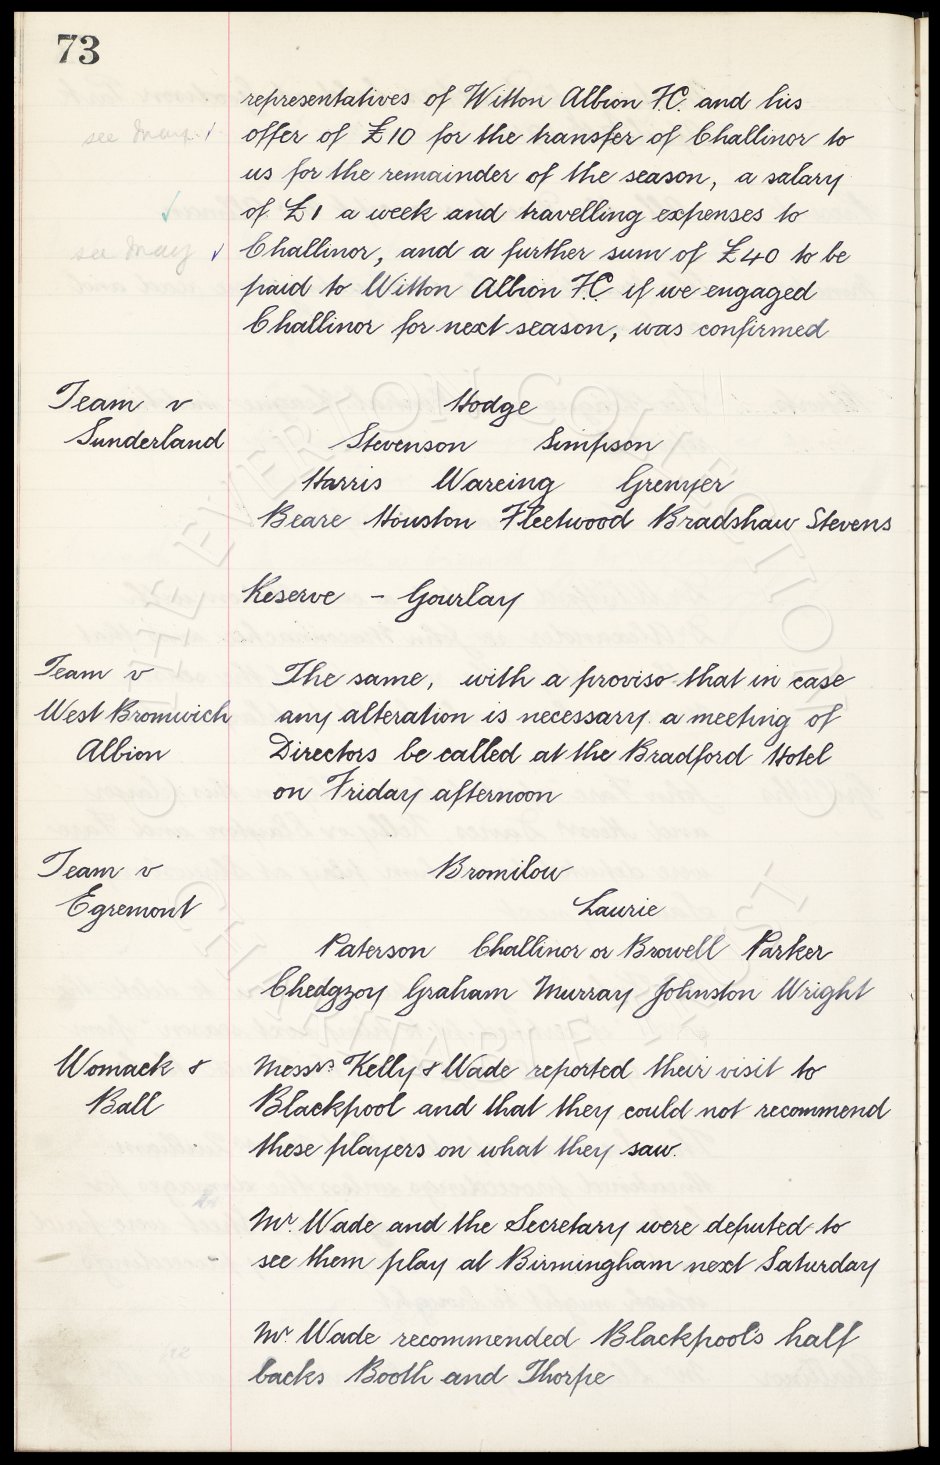 73
representatives of Witton Albion F.C. and his
see May
offer of £10 for the transfer of Challinor to
us for the remainder of the season, a salary
of £1 a week and travelling expenses to
see May
Challinor, and a further sum of £40 to be
paid to Witton Albion F.C. if we engaged
Challinor for next season, was confirmed
Team v
Sunderland
Hodge
Stevenson Simpson
Harris Wareing Grenyer
Beare Houston Fleetwood Bradshaw Stevens
Reserve - Gourlay
Team v
West Bromwich
Albion
The same, with a proviso that in case
any alteration is necessary a meeting of
Directors be called at the Bradford Hotel
on Friday afternoon
Team v
Egremont
Bromilow
Laurie
Paterson Challinor or Browell Parker
Chedgzoy Graham Murray Johnston Wright
Womack &
Ball
Messrs Kelly & Wade reported their visit to
Blackpool and that they could not recommend
these players on what they saw.
Mr. Wade and the Secretary were deputed to
see them play at Birmingham next Saturday
Mr. Wade recommended Blackpool's half
backs Booth and Thorpe
THE EVERTON COLLECTION